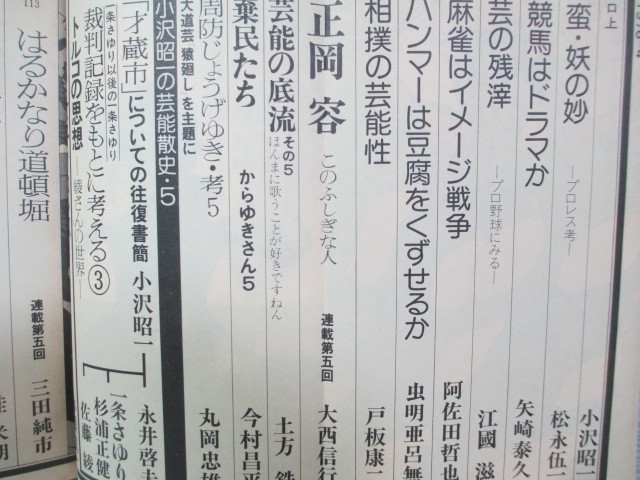 ロ上
小沢昭一
蛮・妖の妙
―プロレス考―
松永伍一
競馬はドラマか
矢崎泰久
芸の残滓
―プロ野球にみる―
江國 滋
麻雀はイメージ戦争
阿佐田哲也
ハンマーは豆腐をくずせるか
虫明亜呂無
相撲の芸能性
戸板康二
正岡 容
このふしぎな人
連載第五回
大西信行
芸能の底流 その5
ほんまに歌うことが好きですねん
土方 鉄
棄民たち
からゆきさん5
今村昌平
周防じょうげゆき・考5
丸岡忠雄
大道芸 猿廻しを主題に
小沢昭一の芸能散史・5
「才蔵市」についての往復書簡
小沢昭一
永井啓夫
一条さゆり以後の一条さゆり
裁判記録をもとに考える③
一条さゆり
杉浦正健
トルコの思想
―綾さんの世界―
佐藤 綾
113
はるかなり道頓堀
連載第五回
三田純市